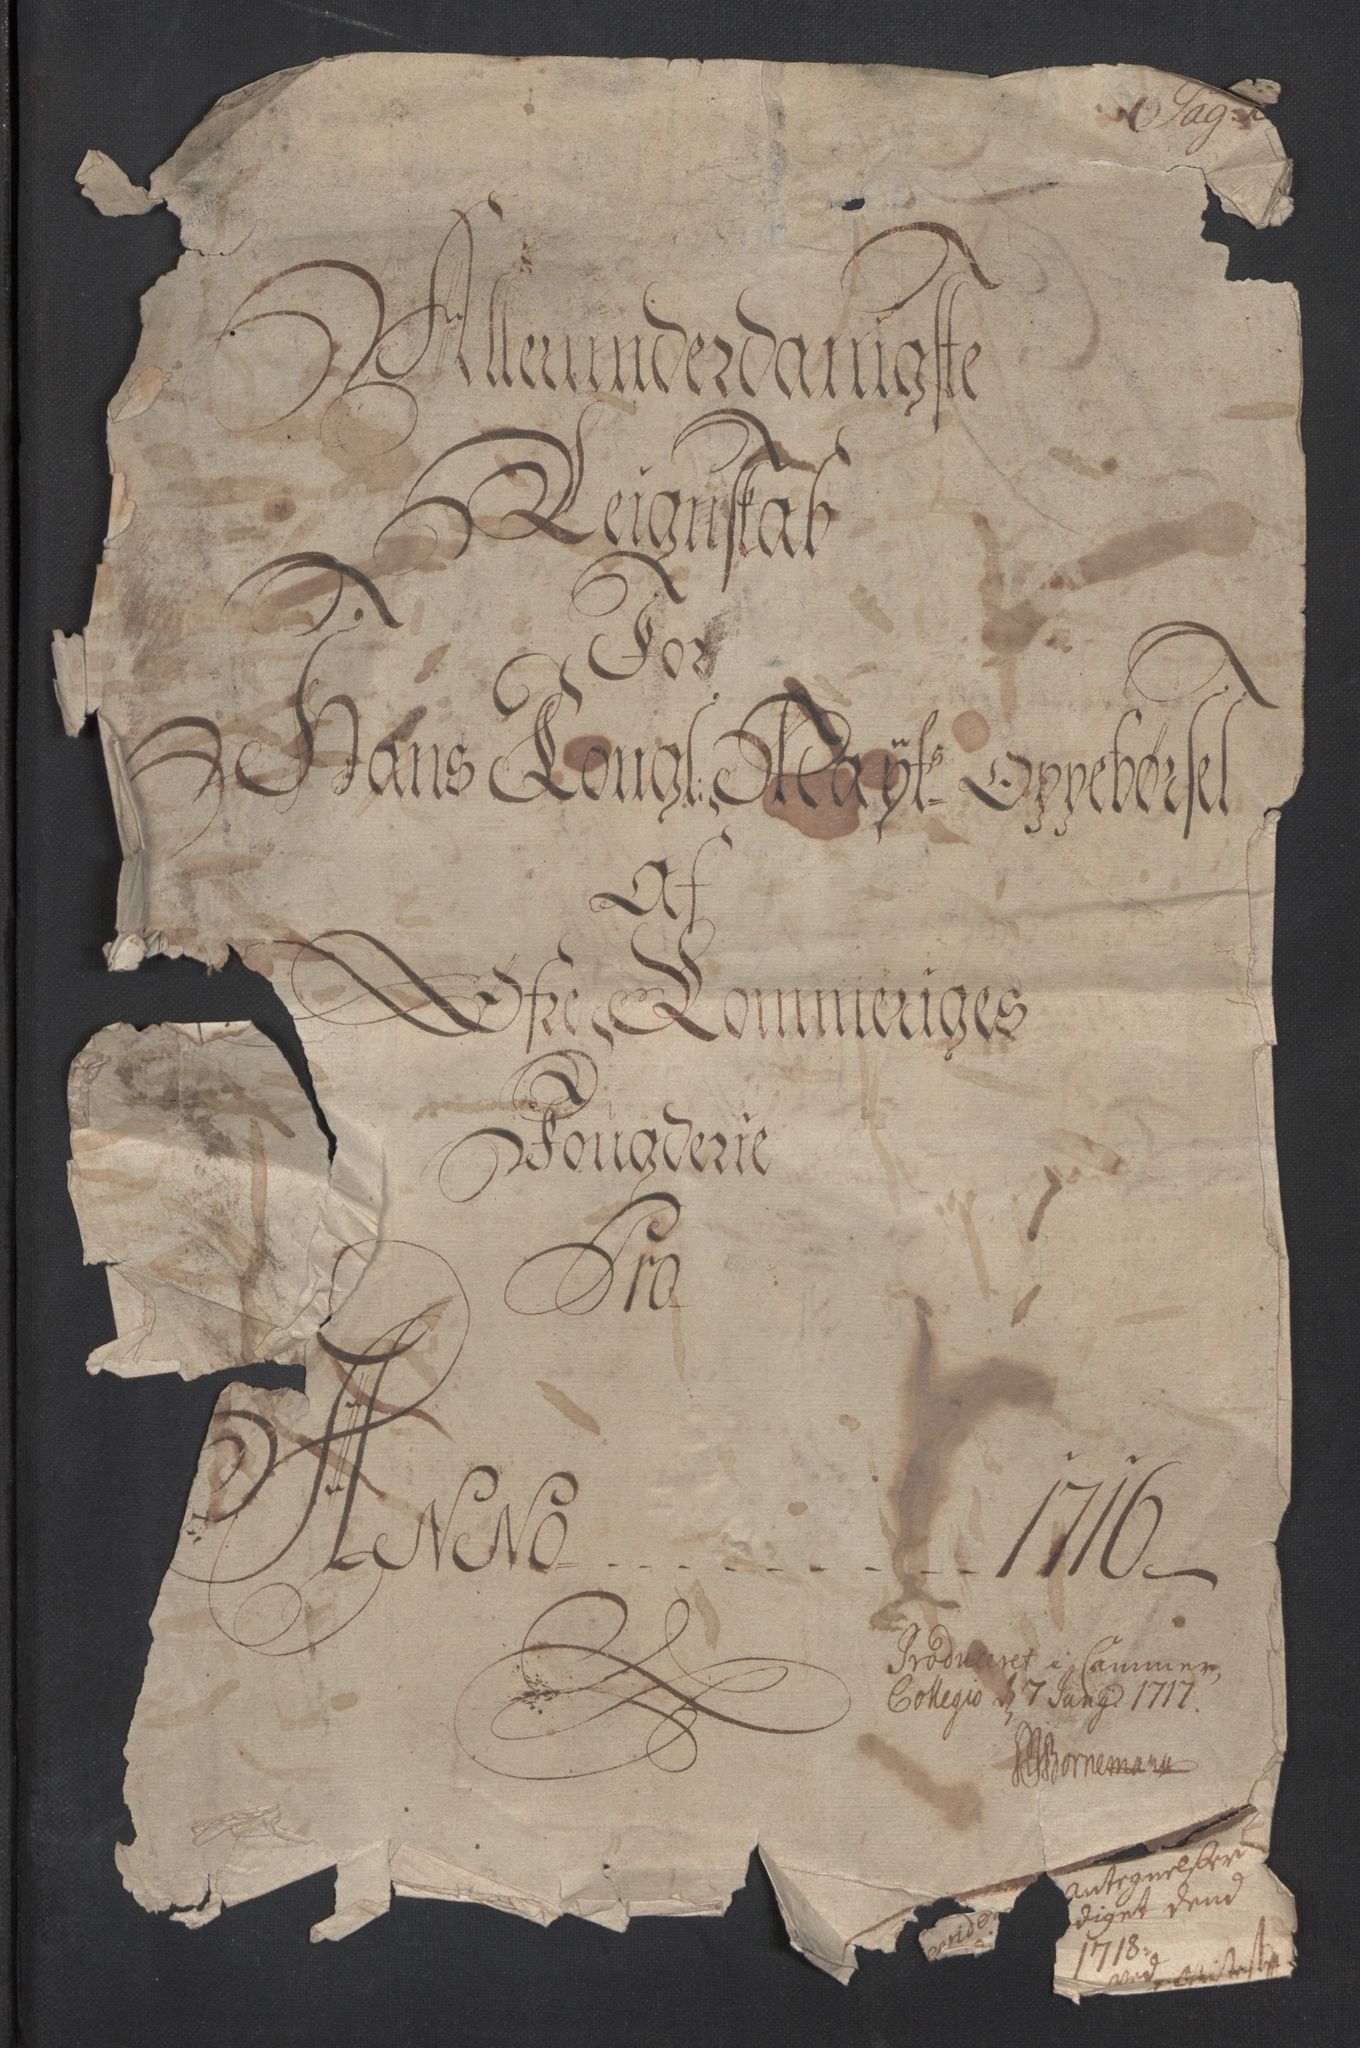 Pag: 1
Allerunderdanigste
Reignskab
For
Hans Kongl: Maÿts Oppebørsel
Af
Øfre Rommeriges
Fougderie
Pro
ANNO 1716
Produceret i Cammer
Collegio d 7 Jung 1717.
Bornemann
antegnelser
diget dend
1718